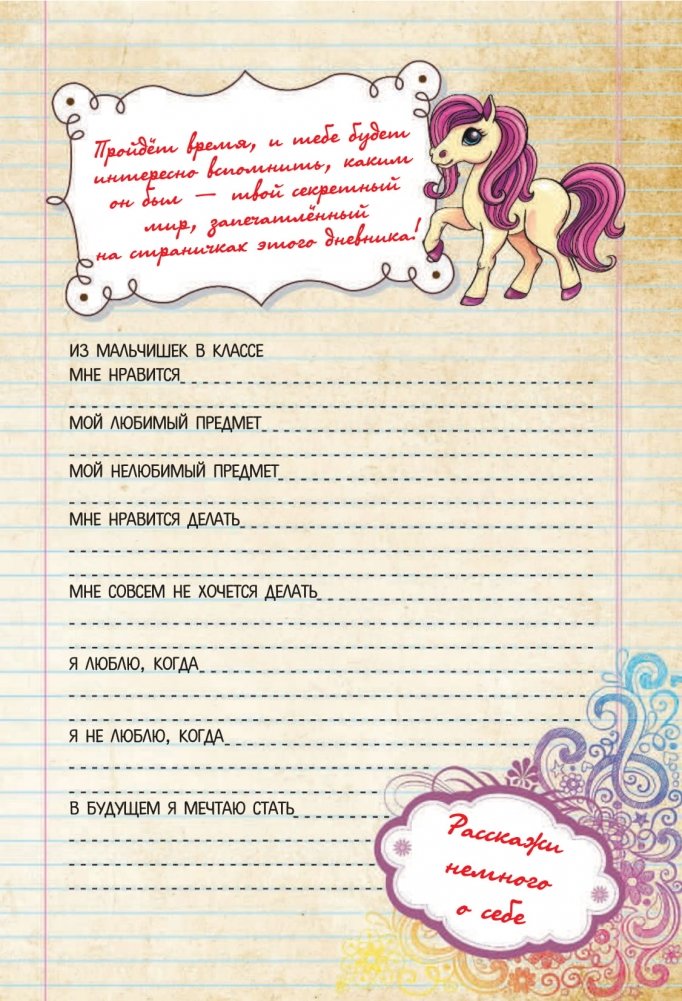 Пройдёт время, и тебе будет
интересно вспомнить, каким
он был — твой секретный
мир, запечатлённый
на страничках этого дневника!
ИЗ МАЛЬЧИШЕК В КЛАССЕ
МНЕ НРАВИТСЯ
МОЙ ЛЮБИМЫЙ ПРЕДМЕТ
МОЙ НЕЛЮБИМЫЙ ПРЕДМЕТ
МНЕ НРАВИТСЯ ДЕЛАТЬ
МНЕ СОВСЕМ НЕ ХОЧЕТСЯ ДЕЛАТЬ
Я ЛЮБЛЮ, КОГДА
Я НЕ ЛЮБЛЮ, КОГДА
В БУДУЩЕМ Я МЕЧТАЮ СТАТЬ
Расскажи
немного
о себе